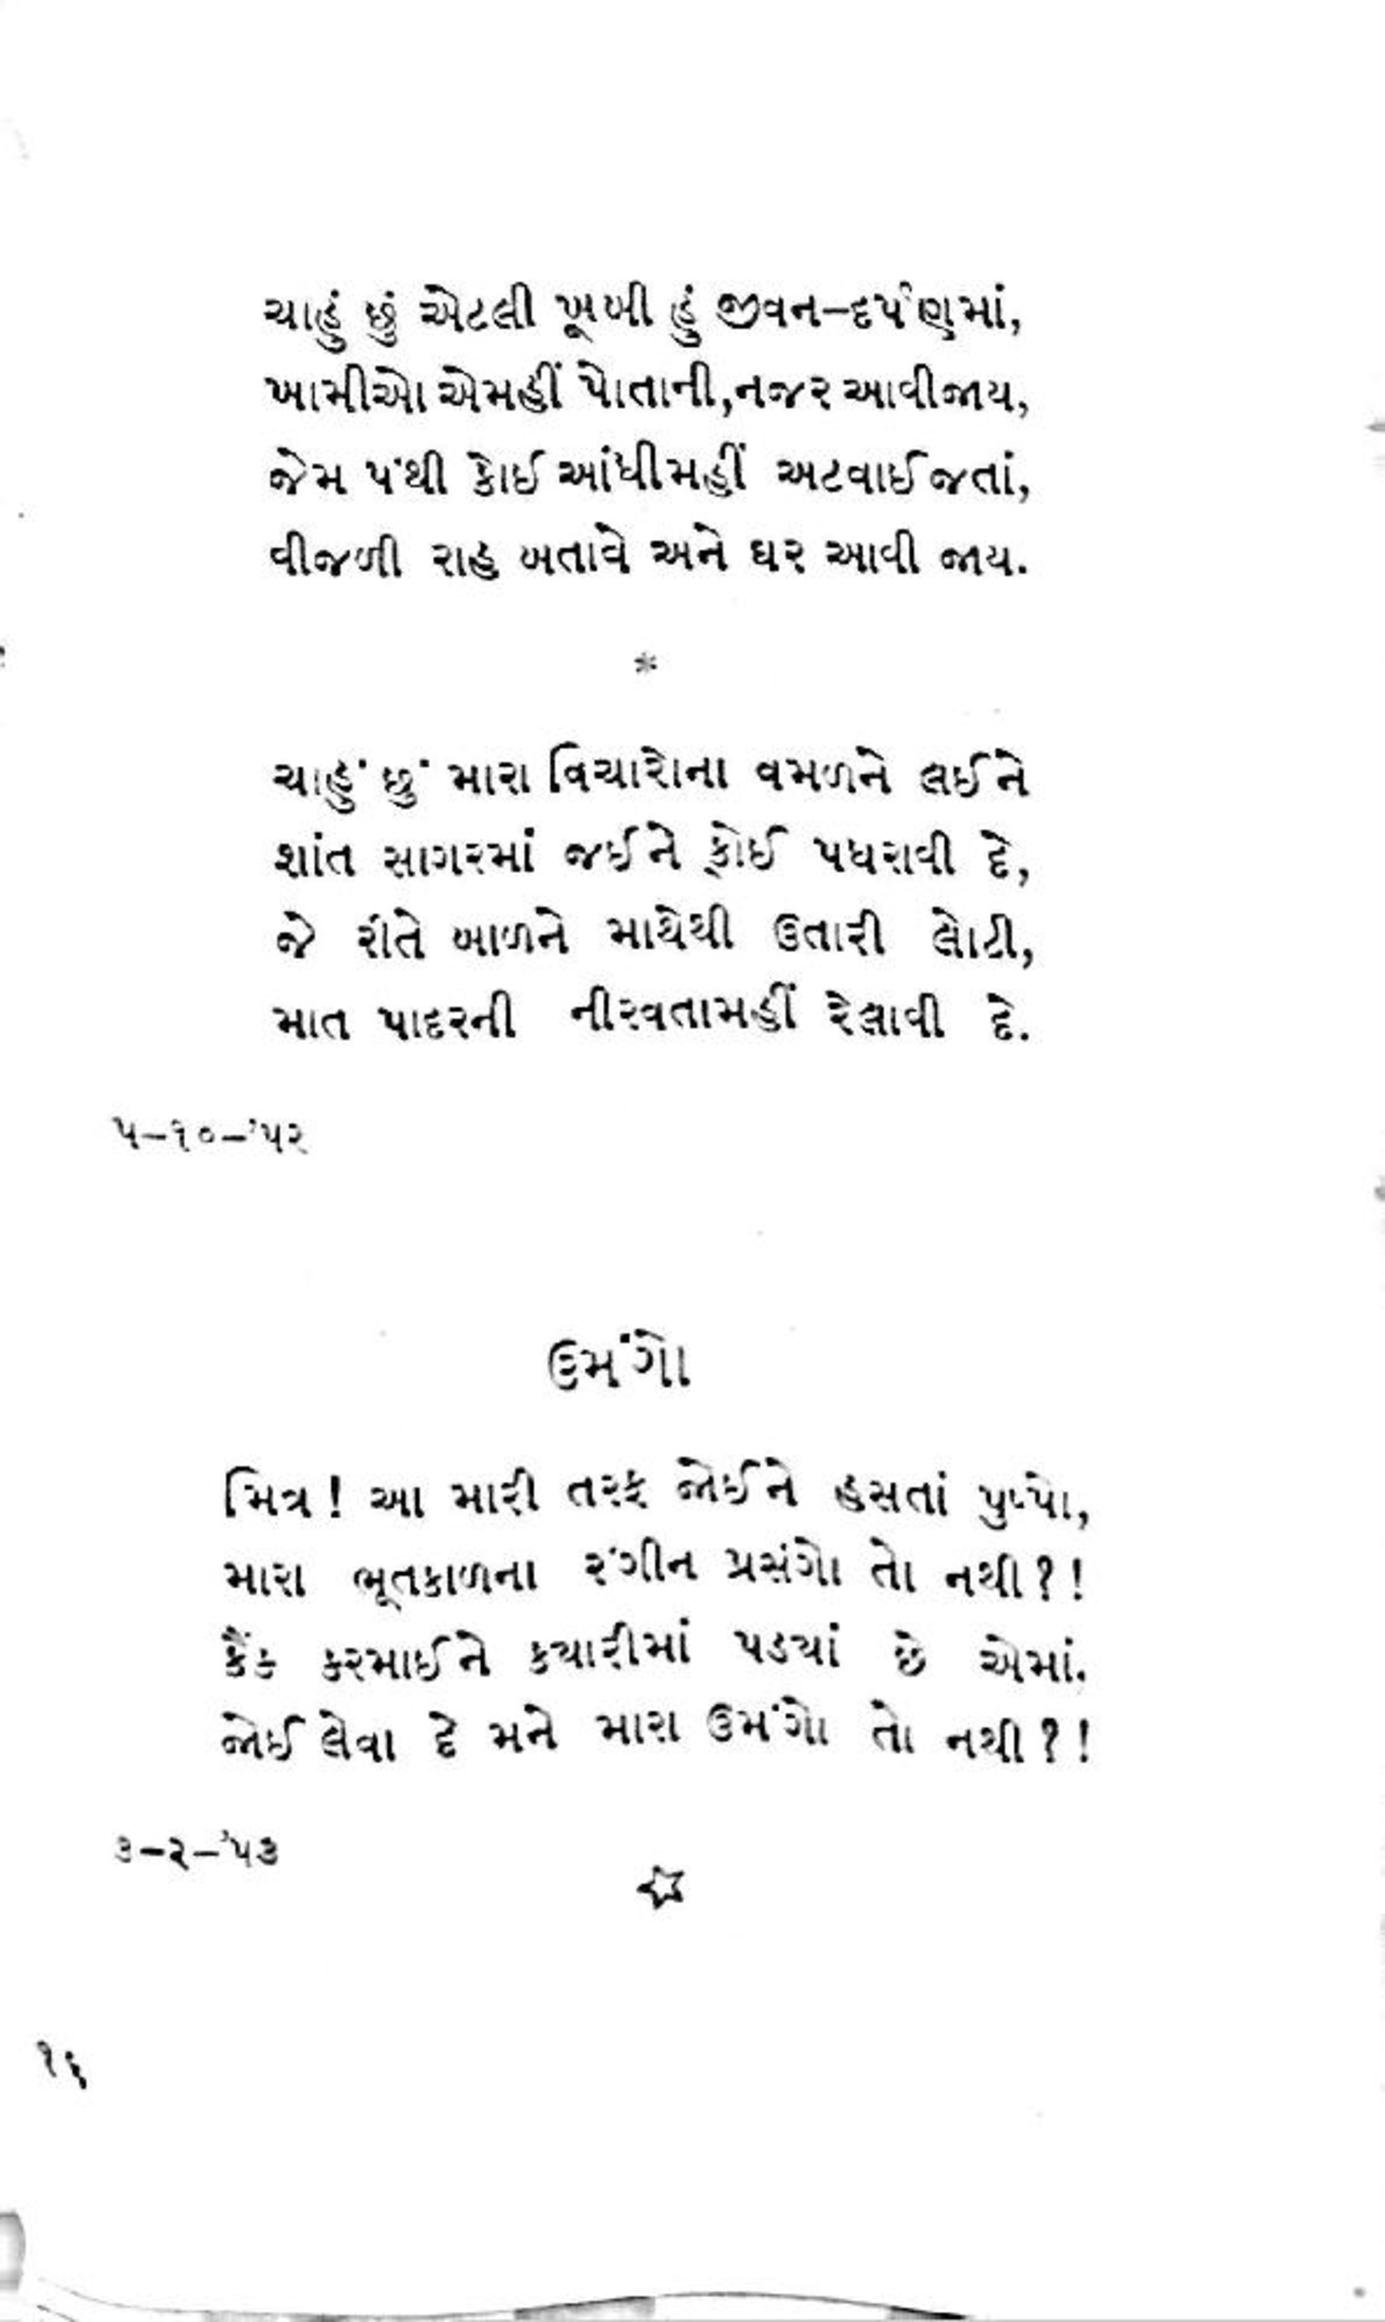 ચાહું છું એટલી ખૂબી હું જીવન-દર્પણમાં,
ખામીઓ એમહીં પોતાની,નજર આવીજાય,
જેમ પંથી કોઈ આંધીમહીં અટવાઈ જતાં,
વીજળી રાહ બતાવે અને ઘર આવી જાય.
*
ચાહું છું મારા વિચારોના વમળને લઈને
શાંત સાગરમાં જઈને કોઈ પધરાવી દે,
જે રીતે બાળને માથેથી ઉતારી લોટી,
માત પાદરની નીરવતામહીં રેલાવી દે.
૫-૧૦-'૫૨
ઉમંગો
મિત્ર! આ મારી તરફ જોઈને હસતાં પુષ્પો,
મારા ભૂતકાળના રંગીન પ્રસંગો તો નથી?!
કૈંક કરમાઈને ક્યારીમાં પડ્યાં છે એમાં.
જોઈ લેવા દે મને મારા ઉમંગો તો નથી?!
૩-૨-'૫૩
૧૬